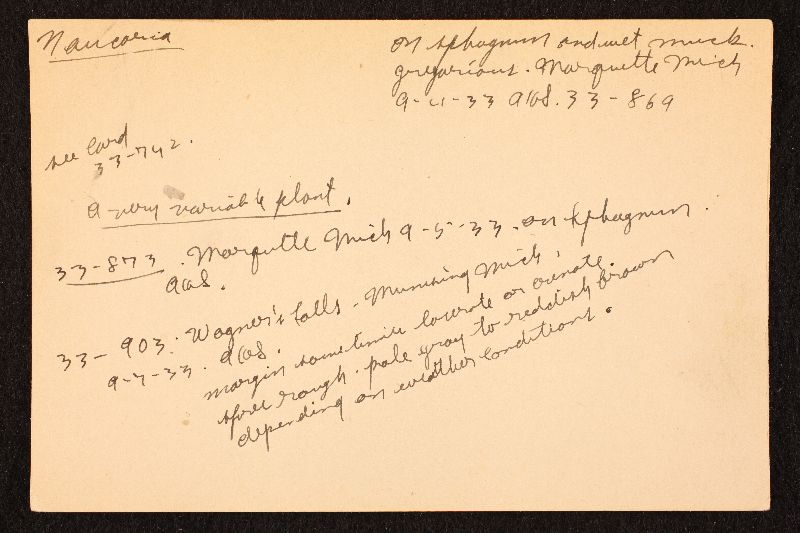 Naucoria
on sphagnum and wet muck.
gregarious. Marquette Mich
9-4-33 AHS. 33-869
see Card
33-742.
a very variable plant.
33-873. Marquette Mich 9-5-33. on sphagnum.
AHS.
33-903. Wagner's falls - Munising Mich.
9-7-33. AHS.
margin sometimes lacerate or crenate.
spore rough. pale gray to reddish brown
depending on weather conditions.